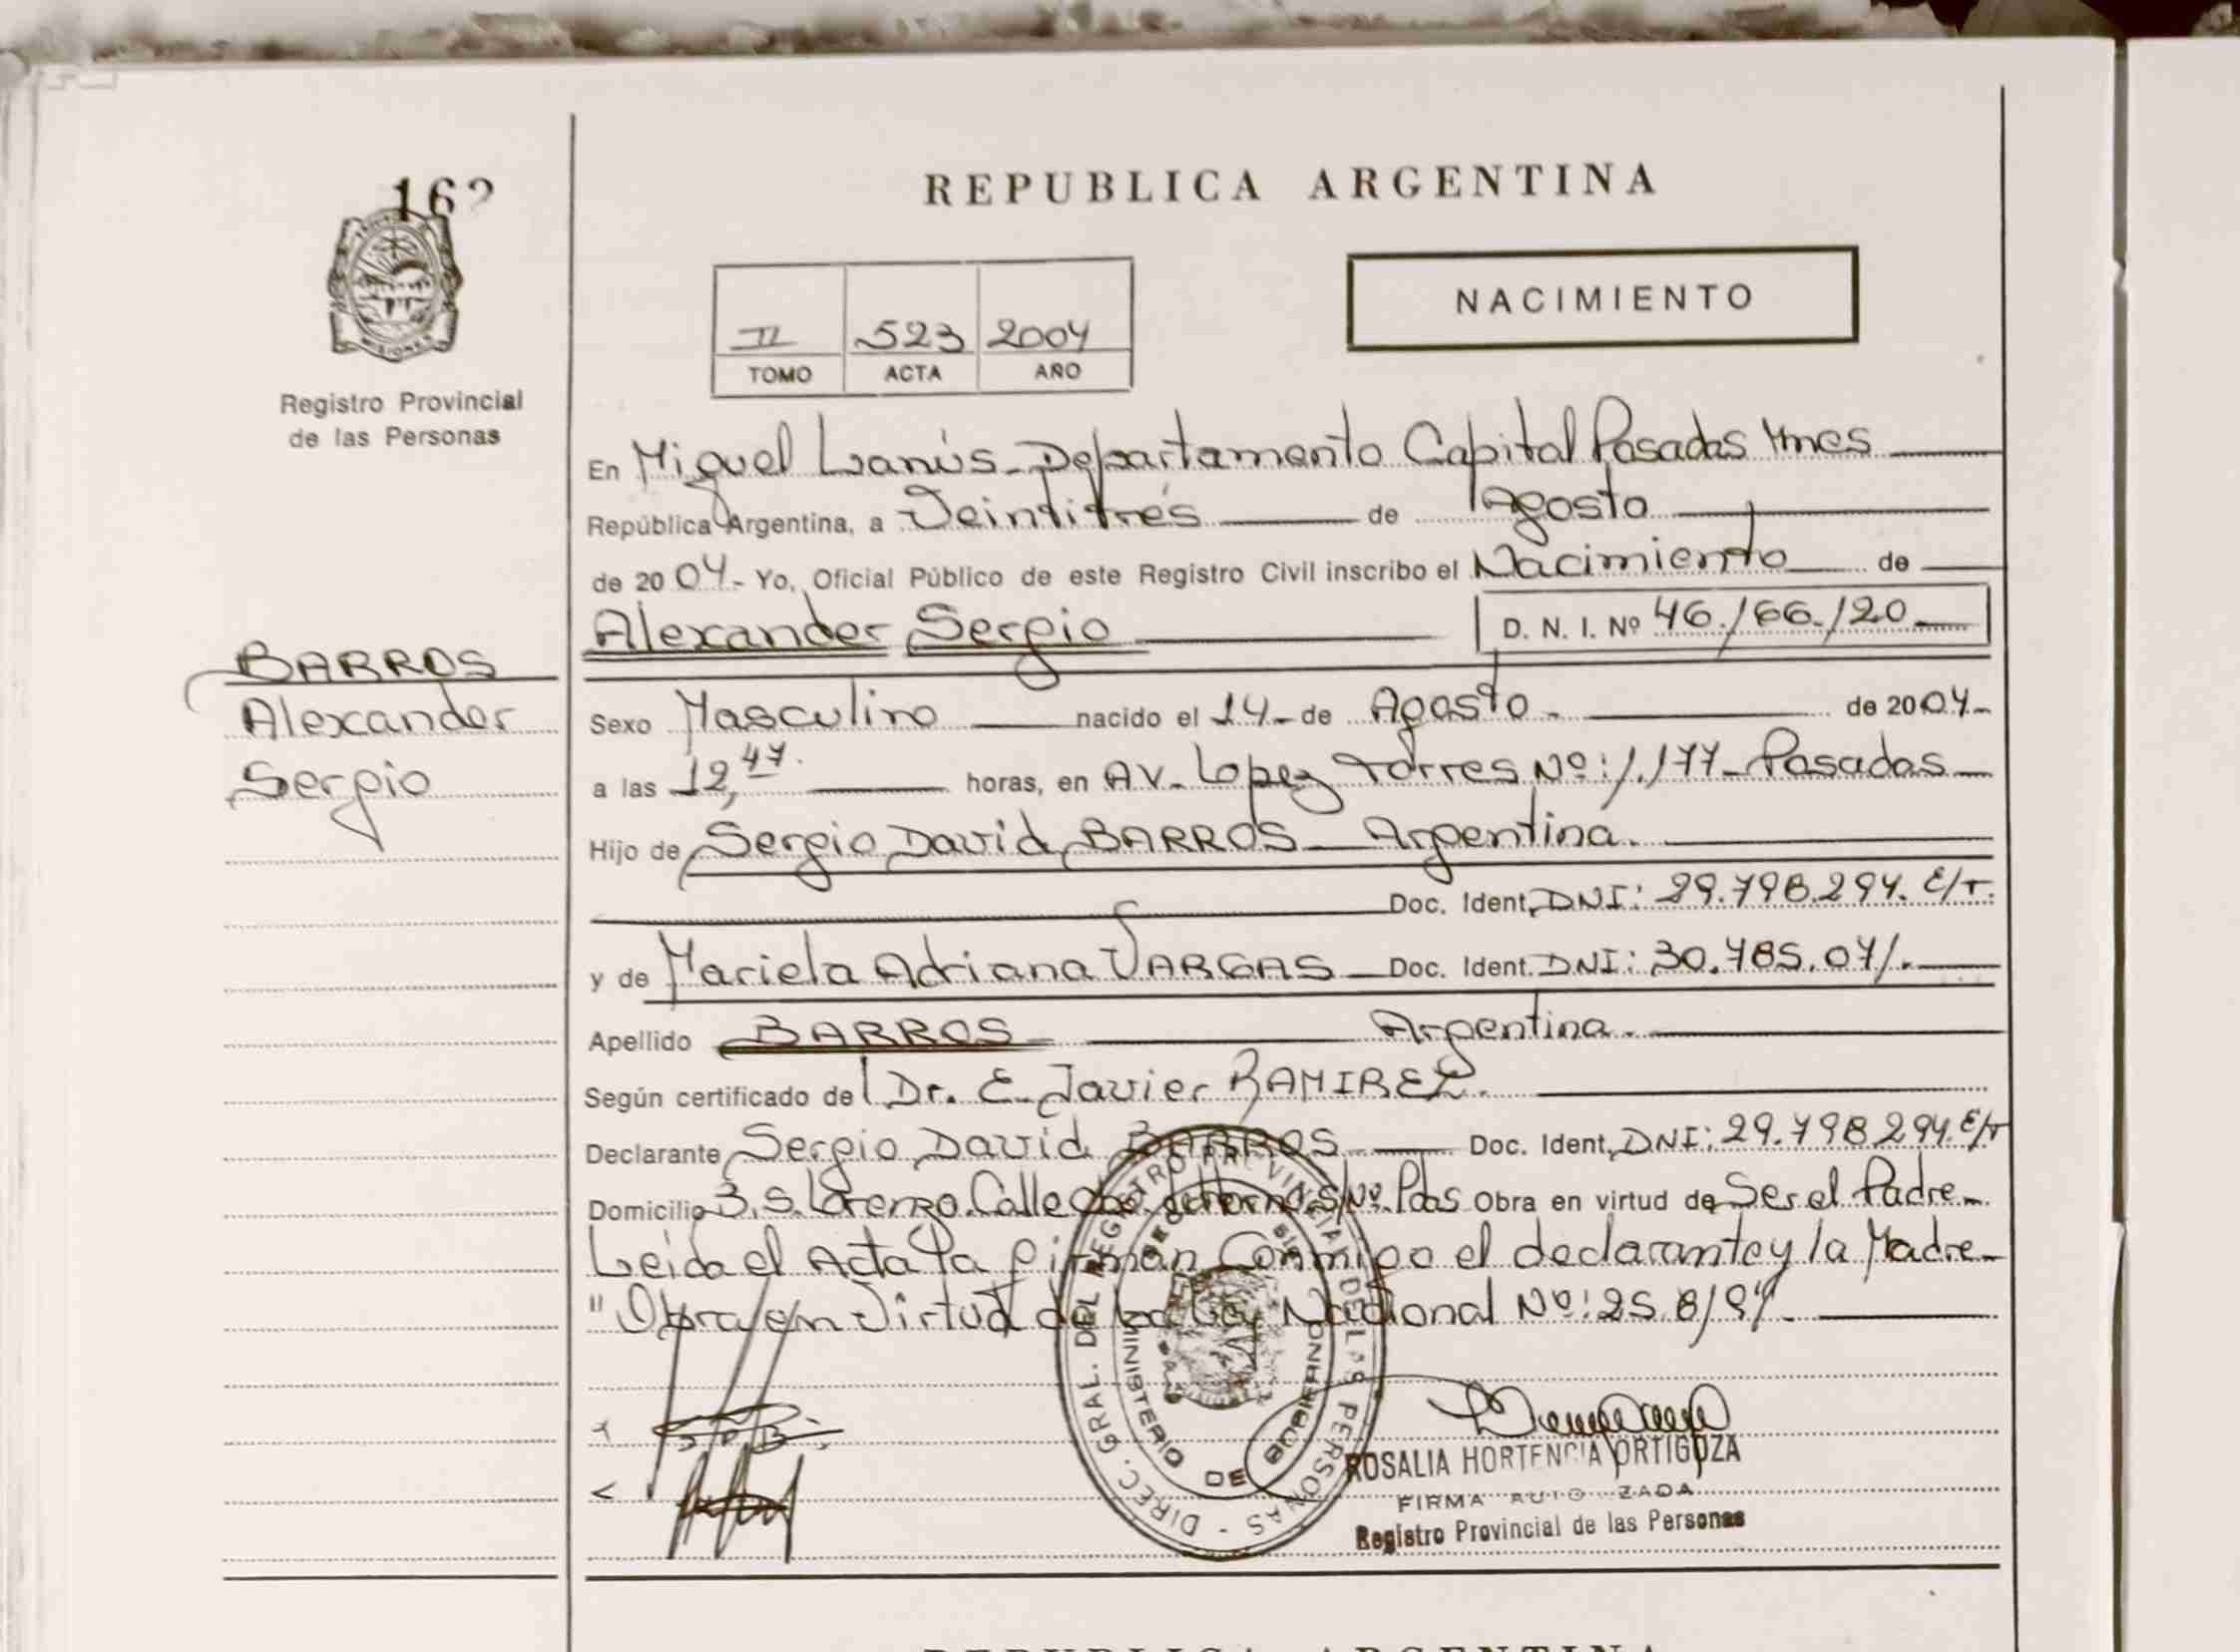 162
MISIONES
Registro Provincial
de las Personas
BARROS
Alexander
Sergio
REPUBLICA ARGENTINA
II 523 2004
TOMO ACTA AÑO
NACIMIENTO
En Miguel Lanús - Departamento Capital Posadas Mnes
República Argentina, a Veintitrés de Agosto
de 2004- Yo, Oficial Público de este Registro Civil inscribo el Nacimiento de
Alexander Sergio D. N. I. Nº 46./66./20
Sexo Masculino nacido el 14- de Agosto - de 2004-
a las 12,47. horas, en AV- Lopez Torres Nº: 1.177- Posadas
Hijo de Sergio David BARROS - Argentina.
Doc. Ident, DNI: 29.798.294. E/T.
y de Mariela Adriana VARGAS - Doc. Ident. DNI: 30.785.071.
Apellido BARROS Argentina.
Según certificado del Dr. E. Javier RAMIREZ.
Declarante Sergio David BARROS Doc. Ident, DNI: 29.798.294. E/T
Domicilio B. S. Lorenzo. Calle S/Nº. Pdas Obra en virtud de Ser el Padre-
Leida el Acta la firman Conmigo el declarante y la Madre-
"Obra en Virtud de la Ley Nacional Nº: 25.819.
DIREC. GRAL. DEL REGISTRO PROVINCIAL DE LAS PERSONAS -
MINISTERIO DE GOBIERNO
ROSALIA HORTENCIA ORTIGOZA
FIRMA AUTORIZADA
Registro Provincial de las Personas
REPUBLICA ARGENTINA